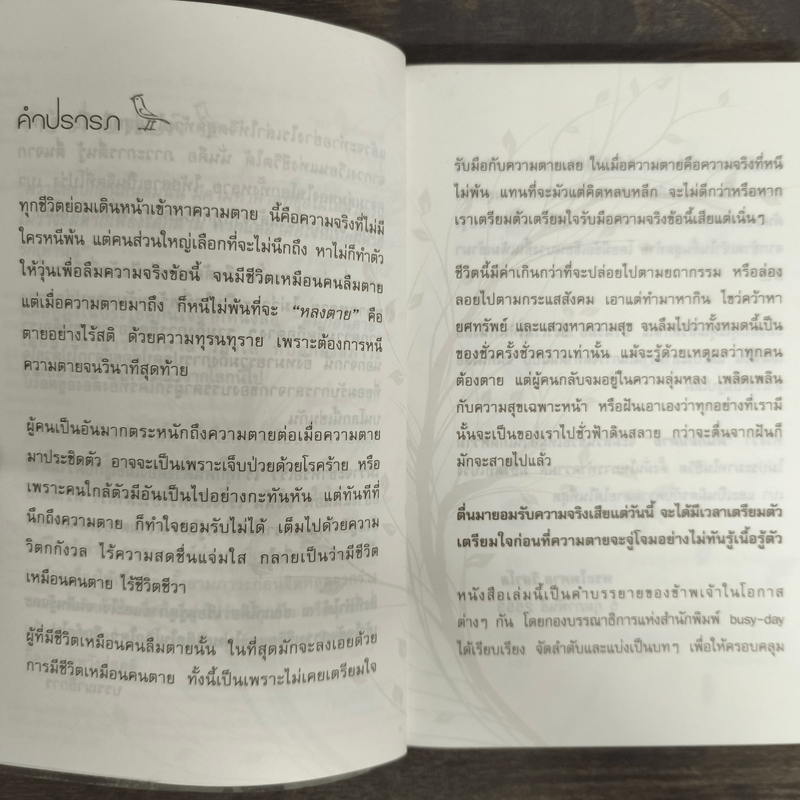 คำปรารภ
ทุกชีวิตย่อมเดินหน้าเข้าหาความตาย นี้คือความจริงที่ไม่มี
ใครหนีพ้น แต่คนส่วนใหญ่เลือกที่จะไม่นึกถึง หาไม่ก็ทำตัว
ให้วุ่นเพื่อลืมความจริงข้อนี้ จนมีชีวิตเหมือนคนลืมตาย
แต่เมื่อความตายมาถึง ก็หนีไม่พ้นที่จะ “หลงตาย” คือ
ตายอย่างไร้สติ ด้วยความทุรนทุราย เพราะต้องการหนี
ความตายจนวินาทีสุดท้าย
ผู้คนเป็นอันมากตระหนักถึงความตายต่อเมื่อความตาย
มาประชิดตัว อาจจะเป็นเพราะเจ็บป่วยด้วยโรคร้าย หรือ
เพราะคนใกล้ตัวมีอันเป็นไปอย่างกะทันหัน แต่ทันทีที่
นึกถึงความตาย ก็ทำใจยอมรับไม่ได้ เต็มไปด้วยความ
วิตกกังวล ไร้ความสดชื่นแจ่มใส กลายเป็นว่ามีชีวิต
เหมือนคนตาย ไร้ชีวิตชีวา
ผู้ที่มีชีวิตเหมือนคนลืมตายนั้น ในที่สุดมักจะลงเอยด้วย
การมีชีวิตเหมือนคนตาย ทั้งนี้เป็นเพราะไม่เคยเตรียมใจ
รับมือกับความตายเลย ในเมื่อความตายคือความจริงที่หนี
ไม่พ้น แทนที่จะมัวแต่คิดหลบหลีก จะไม่ดีกว่าหรือหาก
เราเตรียมตัวเตรียมใจรับมือความจริงข้อนี้เสียแต่เนิ่นๆ
ชีวิตนี้มีค่าเกินกว่าที่จะปล่อยไปตามยถากรรม หรือล่อง
ลอยไปตามกระแสสังคม เอาแต่ทำมาหากิน ไขว่คว้าหา
ยศทรัพย์ และแสวงหาความสุข จนลืมไปว่าทั้งหมดนี้เป็น
ของชั่วครั้งชั่วคราวเท่านั้น แม้จะรู้ด้วยเหตุผลว่าทุกคน
ต้องตาย แต่ผู้คนกลับจมอยู่ในความลุ่มหลง เพลิดเพลิน
กับความสุขเฉพาะหน้า หรือฝันเอาเองว่าทุกอย่างที่เรามี
นั้นจะเป็นของเราไปชั่วฟ้าดินสลาย กว่าจะตื่นจากฝันก็
มักจะสายไปแล้ว
ตื่นมายอมรับความจริงเสียแต่วันนี้ จะได้มีเวลาเตรียมตัว
เตรียมใจก่อนที่ความตายจะจู่โจมอย่างไม่ทันรู้เนื้อรู้ตัว
หนังสือเล่มนี้เป็นคำบรรยายของข้าพเจ้าในโอกาส
ต่างๆ กัน โดยกองบรรณาธิการแห่งสำนักพิมพ์ busy-day
ได้เรียบเรียง จัดลำดับและแบ่งเป็นบทๆ เพื่อให้ครอบคลุม